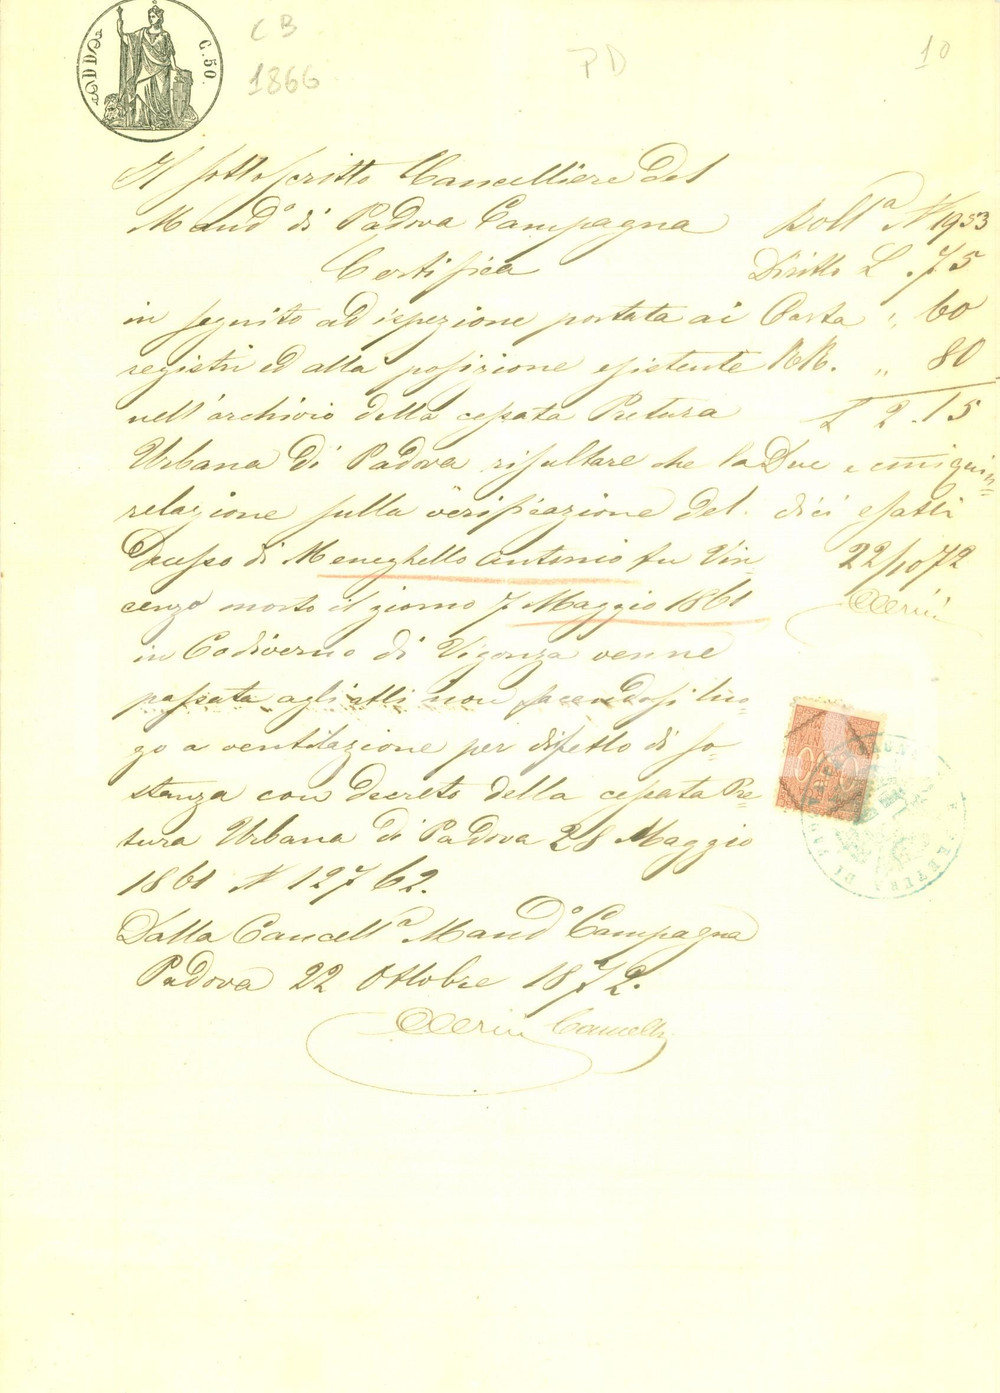 C.50.
CB
1866
PD
10
Il sottoscritto Cancelliere del
Mand.o di Padova Campagna
Certifica
in seguito ad ispezione portata ai
registri ed alla posizione esistente
nell'archivio della cessata Pretura
Urbana di Padova risultare che la
relazione sulla verificazione del
Decesso di Meneghello Antonio fu Vin-
cenzo morto il giorno 7 Maggio 1861
in Codiverno di Vigonza venne
passata agli atti non facendosi luo-
go a ventilazione per difetto di so-
stanza con decreto della cessata Pre-
tura Urbana di Padova 28 Maggio
1861 N 12762.
Dalla Cancell.a Mand.o Campagna
Padova 22 Ottobre 1872.
Cancell.
Boll.a N 1953
Diritto L .75
Carta " 60
RR. " 80
L 2.15
Due e cmi quin-
dici esatti
22/10 72